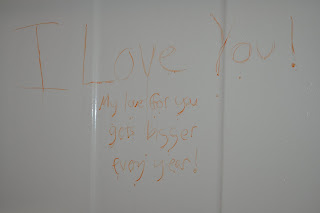 I Love You!
My love for you
gets bigger
every year!